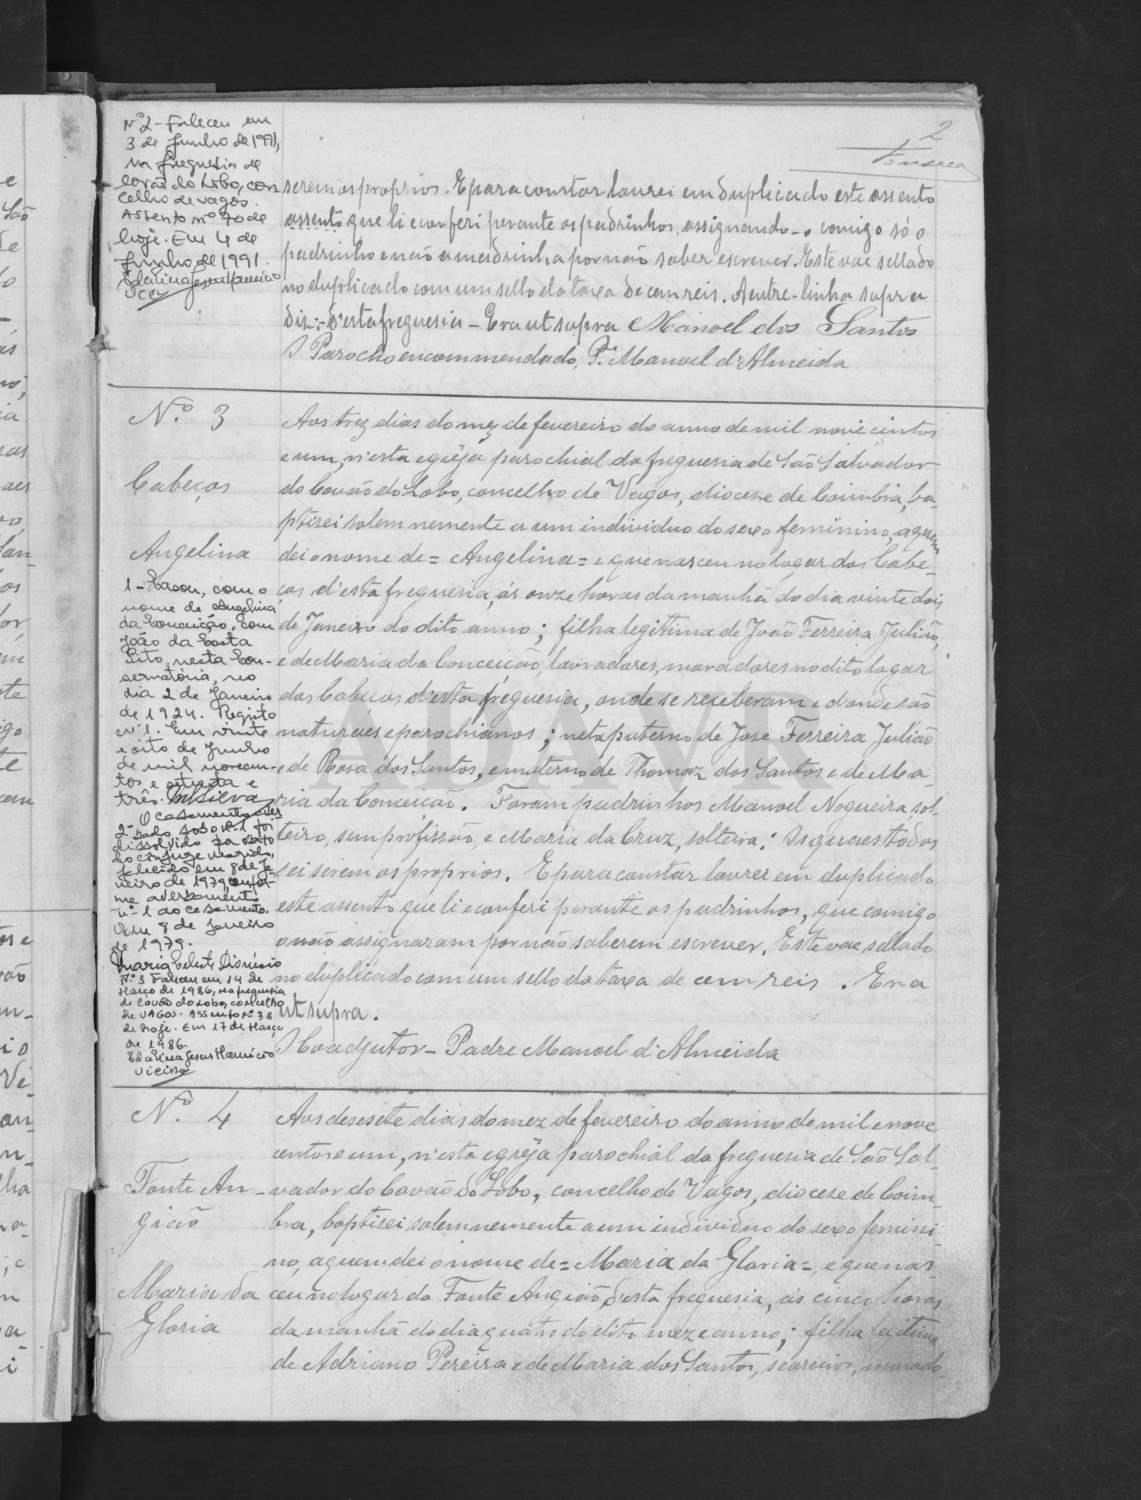 2
Fonseca
Nº 2 - Faleceu em
3 de Junho de 1991,
na freguesia de
Covão do Lobo, con
celho de Vagos.
Assento nº 70 de
hoje. Em 4 de
Junho de 1991.
serem os proprios. E para constar lavrei em duplicado este assento
assento que li e conferi perante os padrinhos, assignando-o comigo só o
padrinho e não a madrinha por não saber escrever. Este vae sellado
no duplicado com um sello da taxa de cem reis. A entre-linha supra
diz:- d'esta freguesia - Era ut supra Manoel dos Santos
O Parocho encommendado, P.e Manoel d'Almeida
N.º 3
Cabeços
Angelina
1 - Casou, com o
nome de Angelina
da Conceição, com
João da Costa
Lito, nesta Con-
servatória, no
dia 2 de Janeiro
de 1924. Registo
nº 1. Em vinte
e oito de Junho
de mil novecen-
tos e setenta e
três. MSilva
2 - O casamento aver
bado sob o nº 1 foi
dissolvido por óbito
do cônjuge marido,
falecido em 8 de Ja-
neiro de 1979, confor-
me averbamento
nº 1 ao casamento.
Em 8 de Janeiro
de 1979.
Maria Celeste Dionísio
Nº 3 Faleceu em 14 de
Março de 1986, na freguesia
de Covão do Lobo, concelho
de Vagos. Assento nº 38
de hoje. Em 17 de Março
de 1986.
Edalina Jesus Mauricio
Vieira
Aos trez dias do mez de fevereiro do anno de mil novecentos
e um, n'esta egreja parochial da freguesia de São Salvador
do Covão do Lobo, concelho de Vagos, diocese de Coimbra, ba-
ptisei solemnemente a um individuo do sexo feminino, a quem
dei o nome de = Angelina = e que nasceu no logar dos Cabe-
ços d'esta freguesia, ás onze horas da manhã do dia vinte dois
de Janeiro do dito anno; filha legitima de João Ferreira Julião,
e de Maria da Conceição, lavradores, moradores no dito logar
dos Cabeços d'esta freguesia, onde se receberam e d'onde são
naturaes e parochianos; neta paterno de José Ferreira Julião
e de Rosa dos Santos, e materno de Thomaz dos Santos e de Ma-
ria da Conceição. Foram padrinhos Manoel Nogueira, sol-
teiro, sem profissão, e Maria da Cruz, solteira; os quaes todos
sei serem os proprios. E para constar lavrei em duplicado
este assento que li e conferi perante os padrinhos, que comigo
o não assignaram por não saberem escrever. Este vae sellado
no duplicado com um sello da taxa de cem reis. Era
ut supra.
O Coadjutor - Padre Manoel d'Almeida
N.º 4
Fonte An-
gião
Maria da
Gloria
Aos desesete dias do mez de fevereiro do anno de mil e nove
centos e um, n'esta egreja parochial da freguesia de São Sal-
vador do Covão do Lobo, concelho de Vagos, diocese de Coim-
bra, baptisei solemnemente a um individuo do sexo femini-
no, a quem dei o nome de = Maria da Gloria =, e que nas-
ceu no logar da Fonte Angião d'esta freguesia, ás cinco horas
da manhã do dia quatro do dito mez e anno; filha legitima
de Adriano Pereira e de Maria dos Santos, seareiros, morado-
ADAVR